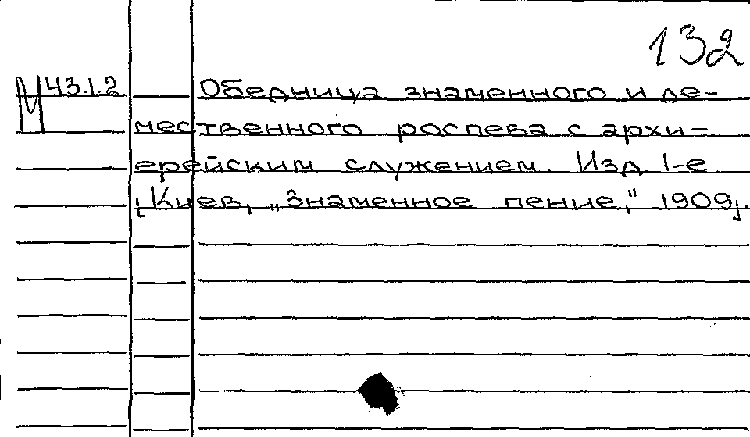 132
М 43.1.2 Обедница знаменного и де-
мественного роспева с архи-
ерейским служением. Изд 1-е
[Киев, „Знаменное пение," 1909].